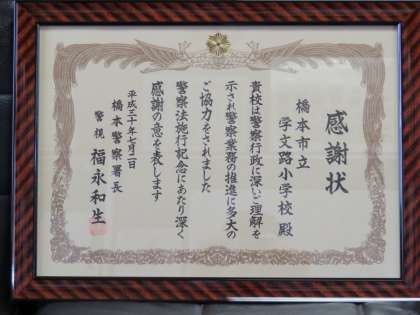 感謝状
橋本市立
学文路小学校 殿
貴校は警察行政に深いご理解を
示され警察業務の推進に多大の
ご協力をされました
警察法施行記念にあたり深く
感謝の意を表します
平成三十年七月二日
橋本警察署長
警視 福永和生